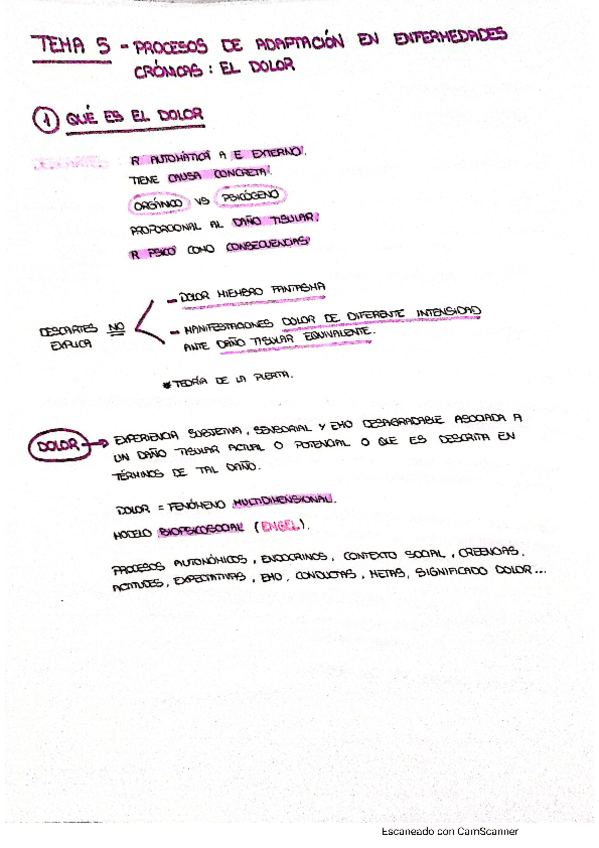 TEMA 5 - PROCESOS DE ADAPTACIÓN EN ENFERMEDADES
CRÓNICAS: EL DOLOR
1 QUÉ ES EL DOLOR
R AUTOMÁTICA A E EXTERNO.
TIENE CAUSA CONCRETA.
ORGÁNICO VS PSICÓGENO
PROPORCIONAL AL DAÑO TISULAR.
R PSICO COMO CONSECUENCIAS
- DOLOR MIEMBRO FANTASMA
DESCARTES NO
EXPLICA
- MANIFESTACIONES DOLOR DE DIFERENTE INTENSIDAD
ANTE DAÑO TISULAR EQUIVALENTE.
* TEORÍA DE LA PUERTA.
DOLOR → EXPERIENCIA SUBJETIVA, SENSORIAL Y EMO DESAGRADABLE ASOCIADA A
UN DAÑO TISULAR ACTUAL O POTENCIAL O QUE ES DESCRITA EN
TÉRMINOS DE TAL DAÑO.
DOLOR = FENÓMENO MULTIDIMENSIONAL.
MODELO BIOPSICOSOCIAL (ENGEL).
PROCESOS AUTONÓMICOS, ENDOCRINOS, CONTEXTO SOCIAL, CREENCIAS.
ACTITUDES, EXPECTATIVAS, EMO, CONDUCTAS, METAS, SIGNIFICADO DOLOR...
Escaneado con CamScanner